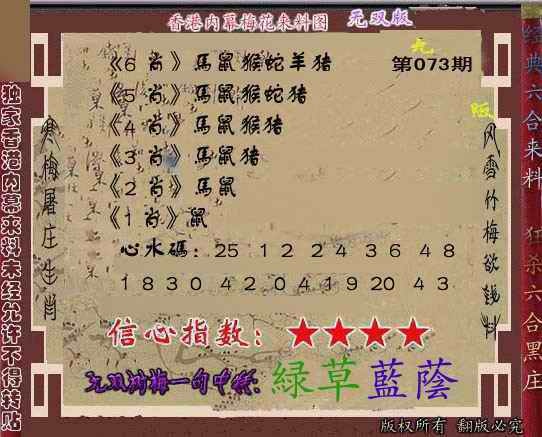 香港内幕梅花来料图 无双版
《6 肖》馬鼠猴蛇羊猪 第073期
《5 肖》馬鼠猴蛇猪
《4 肖》馬鼠猴猪
《3 肖》馬鼠猪
《2 肖》馬鼠
《1 肖》鼠
心水碼：25 12 24 36 48
18 30 42 04 19 20 43
信心指数：★★★★
无双湖梅一句中特：綠草藍蔭
版权所有 翻版必究
独家香港内幕来料未经允许不得转贴
寒梅屠庄生肖
无
版
风雪竹梅欲钱料
经典六合来料 狂杀六合黑庄